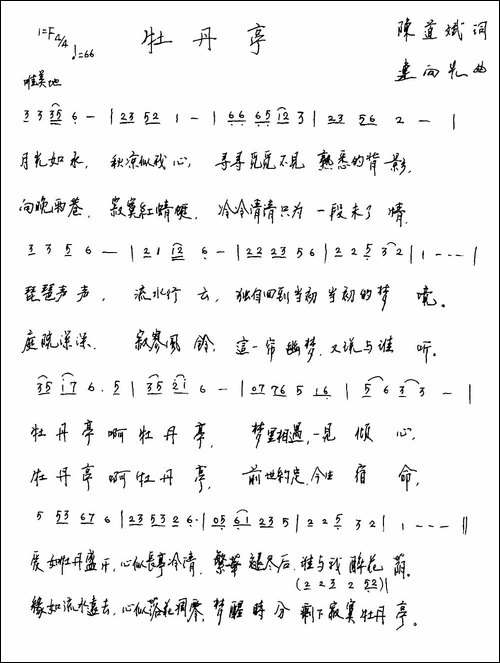 1=F 4/4 ♩=66
牡丹亭
陳道斌 词
孟向光 曲
唯美地
3 3 35 6 - | 23 52 1 - | 66 65 12 3 | 23 56 2 - |
月光如水, 秋凉似我心, 寻寻觅觅不见 熟悉的背影,
向晚雨巷, 寂寞紅蜻蜓, 冷冷清清只为 一段未了情,
3 3 5 6 - | 21 12 6 - | 22 23 5 6 | 2 2 5 3 2 | 1 - - - |
琵琶声声, 流水行云, 独自回到当初 当初的梦境。
庭院深深, 寂寥風铃, 這一帘幽梦, 又说与谁听。
35 17 6. 5 | 35 21 6 - | 07 76 5 16 | 5 6 3 3 - |
牡丹亭啊牡丹亭, 梦里相遇,一見傾心,
牡丹亭啊牡丹亭, 前世約定,今生宿命,
5 53 67 6 | 23 53 2 6. | 05 61 23 5 | 2 2 5 3 2 | 1 - - - ||
爱如牡丹盛开,心似長亭冷清, 繁華褪尽后,谁与我醉花蔭。
(2 2 3 2 52)|
緣如流水遠去,心似落花凋零,梦醒時分 剩下寂寞牡丹亭。